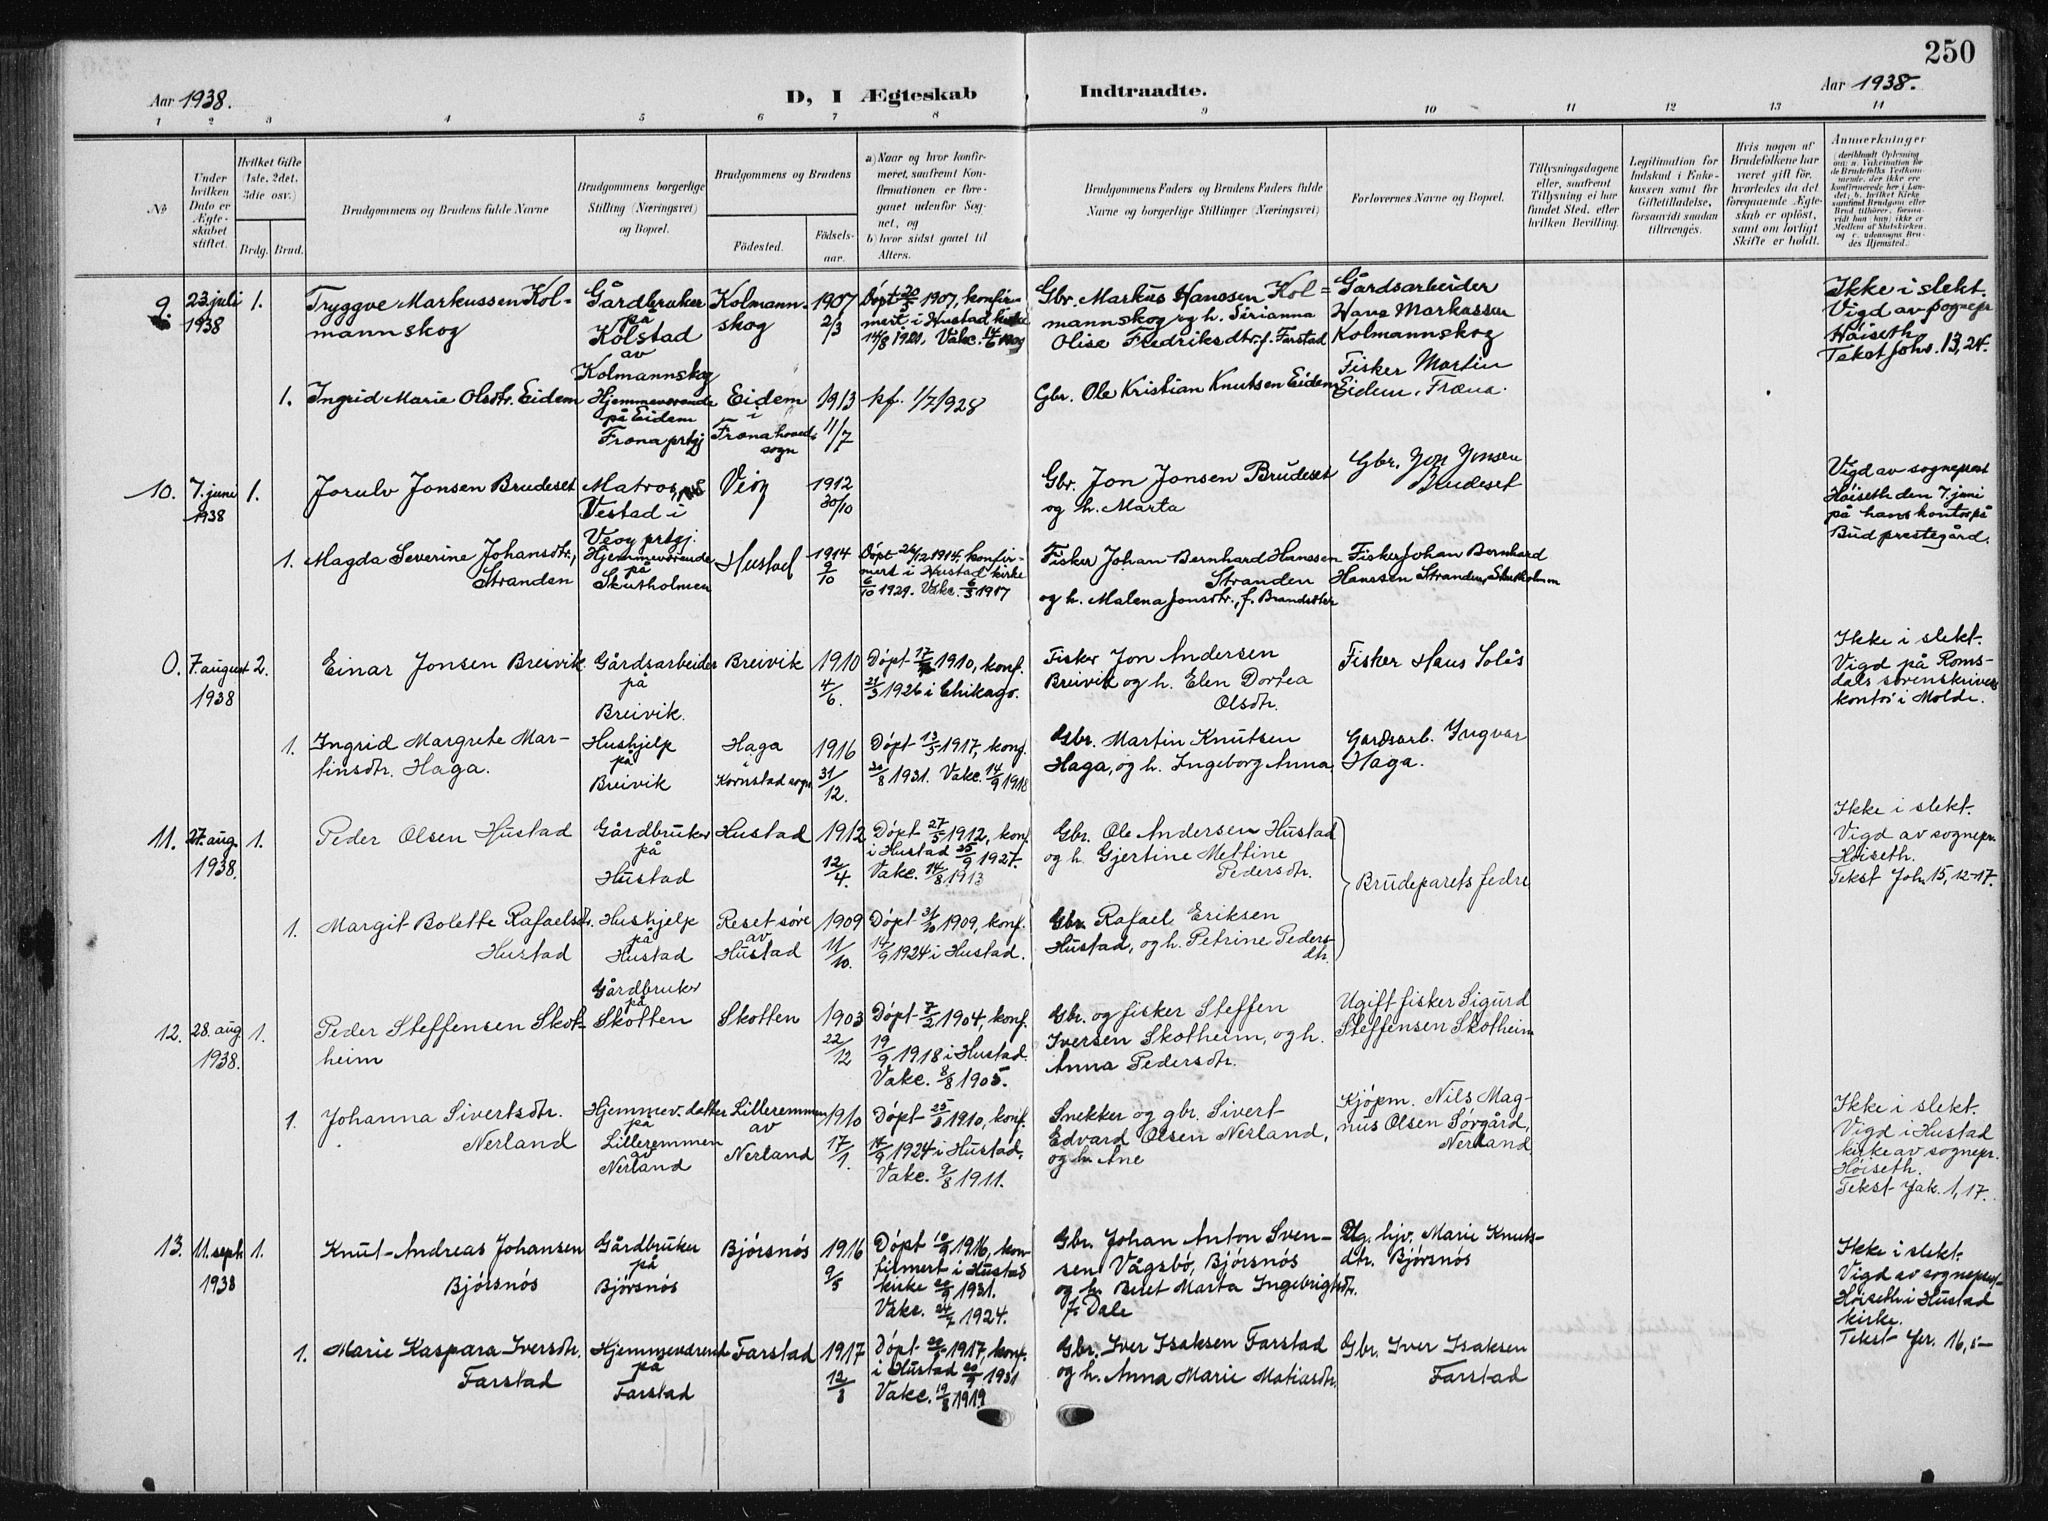 250
Aar 1938.
D, I Ægteskab
Indtraadte.
Aar 1938.
1 2 3 4 5 6 7 8 9 10 11 12 13 14
No
Under hvilken Dato er Ægteskabet stiftet.
Hvilket Gifte (1ste, 2det, 3die osv.)
Brdg. Brud.
Brudgommens og Brudens fulde Navne
Brudgommens borgerlige Stilling (Næringsvei) og Bopæl.
Brudgommens og Brudens
Fødested.
Fødsels-aar.
a) Naar og hvor konfirmeret, saafremt Konfirmationen er foregaaet udenfor Sognet, og
b) hvor sidst gaaet til Alters.
Brudgommens Faders og Brudens Faders fulde Navne og borgerlige Stillinger (Næringsvei)
Forlovernes Navne og Bopæl.
Tillysningsdagene eller, saafremt Tillysning ei har fundet Sted, efter hvilken Bevilling.
Legitimation for Indskud i Enkekassen samt for Giftetilladelse, forsaavidt saadan tiltrænges.
Hvis nogen af Brudefolkene har været gift før, hvorledes da det foregaaende Ægteskab er opløst, samt om lovligt Skifte er holdt.
Anmærkninger
9. 23. juli 1938 1.
Tryggve Markussen Kolmannskog
Gårdbruker på Kolstad av Kolmannskog
Kolmannskog
1907 2/3
Døpt 20/5 1907, konfirmert i Hustad kirke 14/8 1921. Vakc.
Gbr. Markus Hanssen Kolmannskog og h. Sirianna Olise Fredriksdtr. f. Farstad
Gårdsarbeider Hans Markussen Kolmannskog
Ikke i slekt. Vigd av sognepr Høiseth. Tekst Joh. 13, 24.
1. Ingrid Marie Olsdtr. Eidem
Hjemmeværende på Eidem Fræna prtgj
Eidem i Fræna hovedsogn
1913 11/7
kf. 1/7 1928
Gbr. Ole Kristian Knutsen Eidem
Fisker Martin Eidem, Fræna.
10. 7. juni 1938 1.
Jorulv Jonsen Brudeset
Matros, Vestad i Veøy prtgj.
Veøy
1912 30/10
Gbr. Jon Jonsen Brudeset og h. Marta
Gbr. Jon Jonsen Brudeset
Vigd av sogneprest Høiseth den 7. juni på hans kontor på Bud prestegård.
1. Magda Severine Johansdtr. Stranden
Hjemmeværende på Skutholmen
Hustad
1914 9/10
Døpt 26/12 1914, konfirmert i Hustad kirke 6/10 1929. Vakc. 6/5 1917
Fisker Johan Bernhard Hanssen Stranden og h. Malena Jonsdtr., f. Brandsæter
Fisker Johan Bernhard Hanssen Stranden, Skutholmen
0. 7. august 1938 2.
Einar Jonsen Breivik
Gårdsarbeider på Breivik.
Breivik
1910 4/6.
Døpt 17/7 1910, konf. 21/3 1926 i Chikago.
Fisker Jon Andersen Breivik og h. Elen Dortea Olsdtr.
Fisker Hans Solås
Ikke i slekt. Vigd på Romsdals sorenskriverskontor i Molde.
1. Ingrid Margrete Martinsdtr. Haga.
Hushjelp på Breivik
Haga i Kornstad sogn
1916 31/12.
Døpt 13/5 1917, konf. 30/8 1931. Vakc. 14/9 1918
Gbr. Martin Knutsen Haga, og h. Ingeborg Anna
Gardsarb. Yngvar Haga.
11. 27. aug. 1938. 1.
Peder Olsen Hustad
Gårdbruker på Hustad
Hustad
1912 12/4.
Døpt 27/5 1912, konf. i Hustad 25/9 1927. Vakc. 14/8. 1913
Gbr. Ole Andersen Hustad og h. Gjertine Mettine Pedersdtr.
Brudeparets fedre
Ikke i slekt. Vigd av sognepr. Høiseth. Tekst Joh. 15, 12-17.
1. Margit Bolette Rafaelsdtr. Hustad
Hushjelp på Hustad
Reset søre av Hustad
1909 11/10.
Døpt 31/10 1909, konf. 14/9 1924 i Hustad.
Gbr. Rafael Eriksen Hustad, og h. Petrine Pedersdtr.
12. 28. aug 1938. 1.
Peder Steffensen Skotheim
Gårdbruker på Skotten
Skotten
1903 22/12
Døpt 7/2 1904, konf. 19/9 1918 i Hustad. Vakc. 8/8 1905.
Gbr. og fisker Steffen Iversen Skotheim, og h. Anna Pedersdtr.
Ugift fisker Sigurd Steffensen Skotheim
1. Johanna Sivertsdtr. Nerland
Hjemmev. datter på Lilleremmen av Nerland
Lilleremmen av Nerland
1910 17/1.
Døpt 25/3 1910, konf. 14/9 1924 i Hustad, Vakc. 9/8 1911.
Snekker og gbr. Sivert Edvard Olsen Nerland, og h. Ane
Kjøpm. Nils Magnus Olsen Sørgård, Nerland
Ikke i slekt. Vigd i Hustad kirke av sognepr. Høiseth. Tekst Jak. 1, 17.
13. 11. sept. 1938 1.
Knut-Andreas Johansen Bjørsnøs
Gårdbruker på Bjørsnøs
Bjørsnøs
1916 9/5
Døpt 10/9 1916, konfirmert i Hustad kirke 20/9 1931. Vakc. 24/7 1924.
Gbr. Johan Anton Svensen Vågsbø, Bjørsnøs og h. Beret Marta Ingebrigtsdtr. f. Dale
Ug. hjv. Marie Knutsdtr. Bjørsnøs
Ikke i slekt. Vigd av sogneprest Høiseth i Hustad kirke. Tekst Jer. 16, 5-
1. Marie Kaspara Iversdtr. Farstad
Hjemmeværende på Farstad
Farstad
1917 12/3
Døpt 1917, konf. i Hustad 20/9 1931 Vakc. 19/8 1919
Gbr. Iver Isaksen Farstad og h. Anna Marie Matiasdtr.
Gbr. Iver Isaksen Farstad